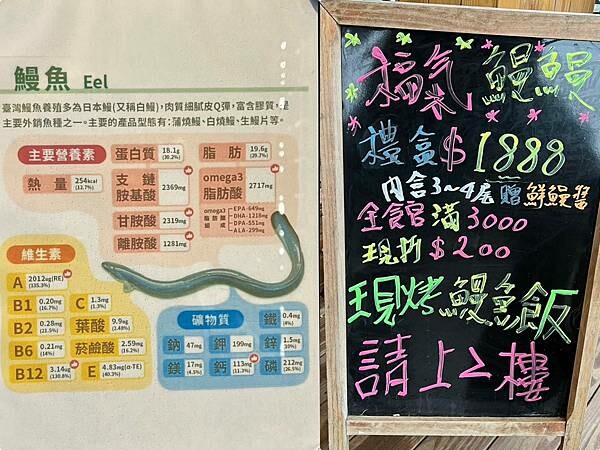 鰻魚 Eel
臺灣鰻魚養殖多為日本鰻(又稱白鰻),肉質細膩皮Q彈,富含膠質,是
主要外銷魚種之一。主要的產品型態有:蒲燒鰻、白燒鰻、生鰻片等。
主要營養素
蛋白質 18.1g (30.2%)
脂肪 19.6g (29.7%)
熱量 254kcal (12.7%)
支鏈胺基酸 2369mg
omega3脂肪酸 2717mg
甘胺酸 2319mg
離胺酸 1281mg
omega3脂肪酸組成
EPA-649mg
DHA-1218mg
DPA-551mg
ALA-299mg
維生素
A 2012ug(RE) (335.3%)
B1 0.20mg (16.7%)
C 1.3mg (1.3%)
B2 0.28mg (21.5%)
葉酸 9.9ug (2.48%)
B6 0.21mg (14%)
菸鹼酸 2.59mg (16.2%)
B12 3.14ug (130.8%)
E 4.83mg(α-TE) (40.3%)
礦物質
鐵 0.4mg (4%)
鈉 47mg
鉀 199mg
鋅 1.5mg (10%)
鎂 17mg (4.5%)
鈣 113mg (11.3%)
磷 212mg (26.5%)
福氣鰻鰻
禮盒$1888
內含3~4尾 贈 鮮鰻醬
全館滿3000
現折$200
現烤鰻魚飯
請上2樓